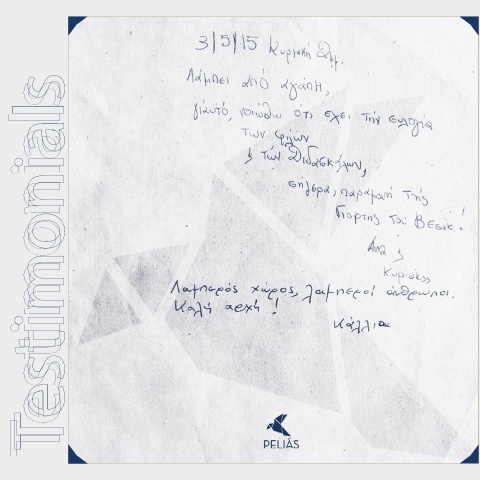 Testimonials
3/5/15 Κυριακή
Λάμπει από αγάπη,
γι'αυτό, νοιώθω ότι έχει την ευλογία
των φίλων
& των Διδασκάλων,
σήμερα, παραμονή της
Γιορτής του Βεσάκ!
Άννα &
Κυριάκος
Λαμπερός χώρος, λαμπεροί άνθρωποι.
Καλή αρχή!
Κάλλια
PELIÁS